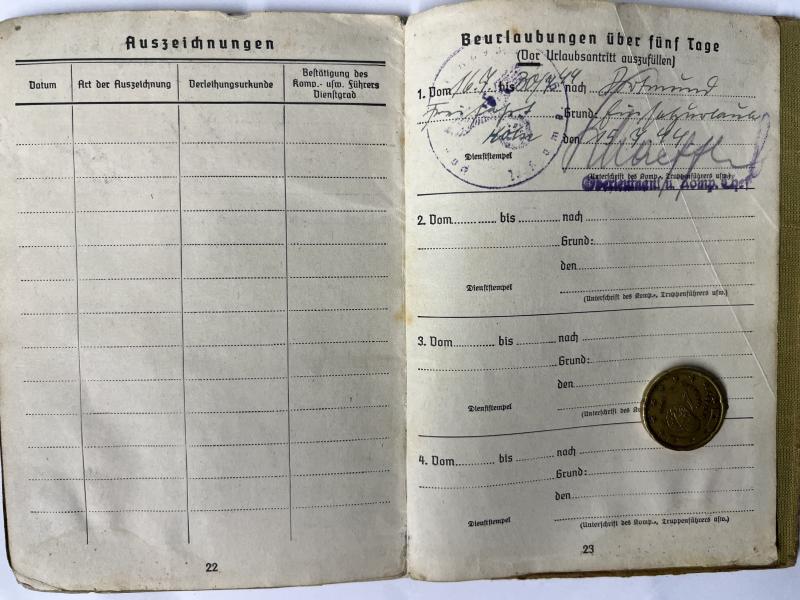 Auszeichnungen
Datum
Art der Auszeichnung
Verleihungsurkunde
Bestätigung des
Komp.- usw. Führers
Dienstgrad
22
Beurlaubungen über fünf Tage
(Vor Urlaubsantritt auszufüllen)
1. Vom bis nach Dortmund
Grund:
Köln den
Dienststempel
(Unterschrift des Komp.-, Truppenführers usw.)
Oberleutnant u. Komp. Chef
2. Vom bis nach
Grund:
den
Dienststempel
(Unterschrift des Komp.-, Truppenführers usw.)
3. Vom bis nach
Grund:
den
Dienststempel
(Unterschrift des
4. Vom bis nach
Grund:
den
Dienststempel
(Unterschrift des Komp.-, Truppenführers usw.)
23